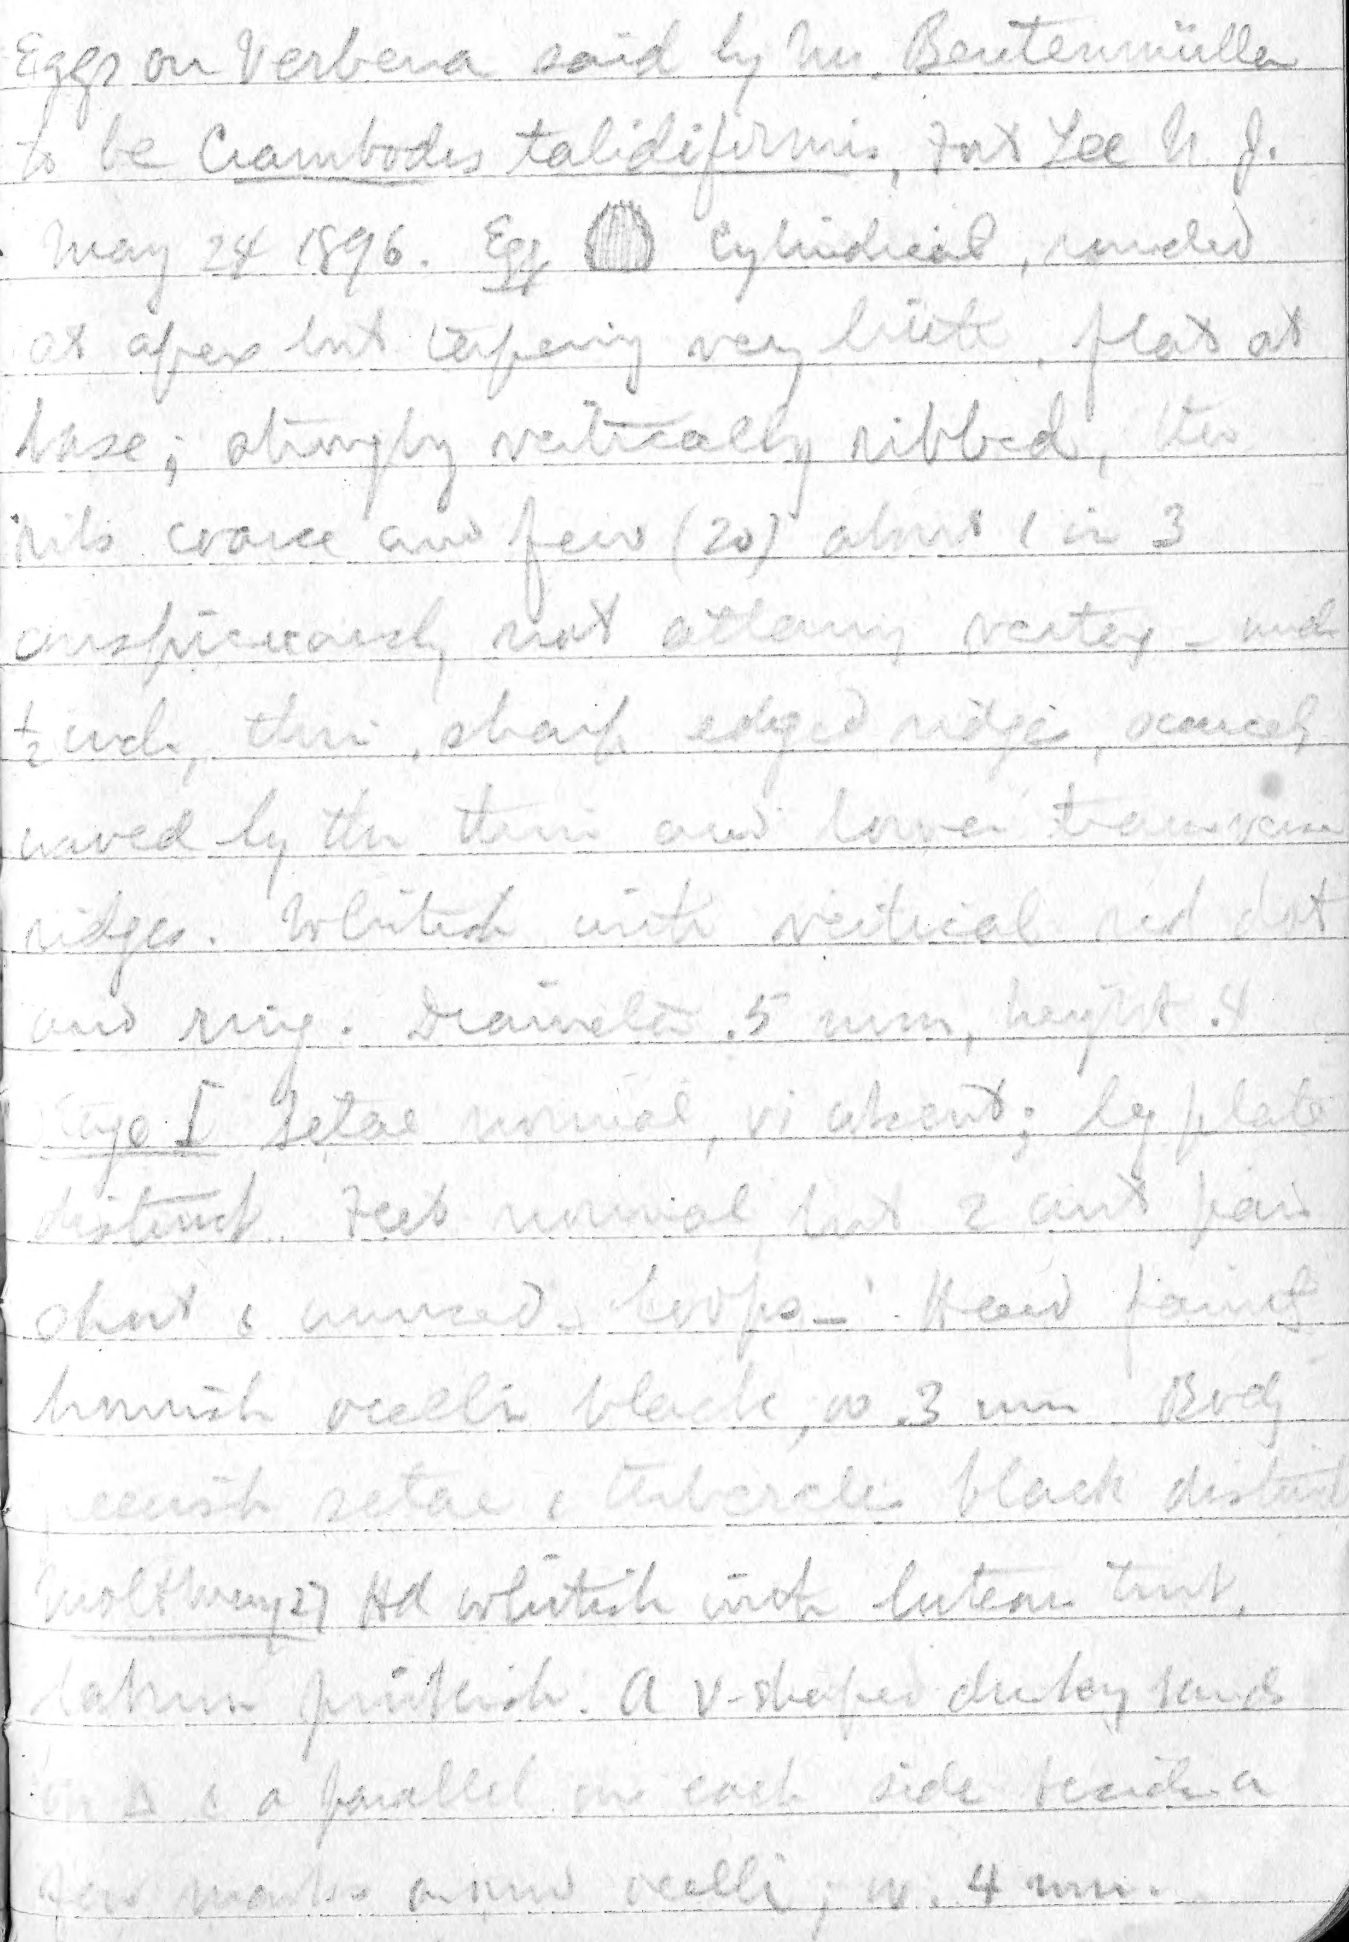 Eggs on Verbena said by Mr. Beutenmüller
to be Crambodes talidiformis, Fort Lee N. J.
May 24 1896. Egg cylindrical, rounded
at apex but tapering very little, flat at
base; strongly vertically ribbed, the
ribs coarse and few (20) about 1 in 3
conspicuously not attaining vertex -
thin, sharp edged ridges, scarcely
waved by the thin and lower transverse
ridges. Whitish with vertical red dot
and ring. Diameter .5 mm, height .4
Stage I Setae normal, vi absent; leg plates
distinct. Feet normal but 2 ant pairs
short & unused, loops -. Head faintly
brownish ocelli black, w .3 mm Body
greenish setae & tubercles black distinct
Molt May 27 Hd whitish with luteous tint,
labrum pinkish. A V-shaped dusky band
on △ & a parallel one each side beside a
few marks around ocelli; w. .4 mm.